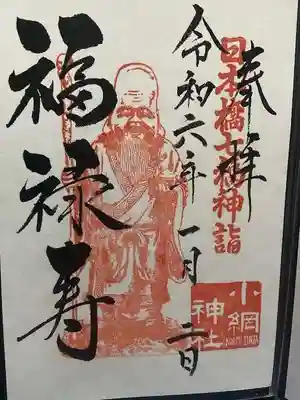 奉拝
日本橋七福神詣
令和六年一月二日
福禄寿
小網
神社
KOAMI JINJA